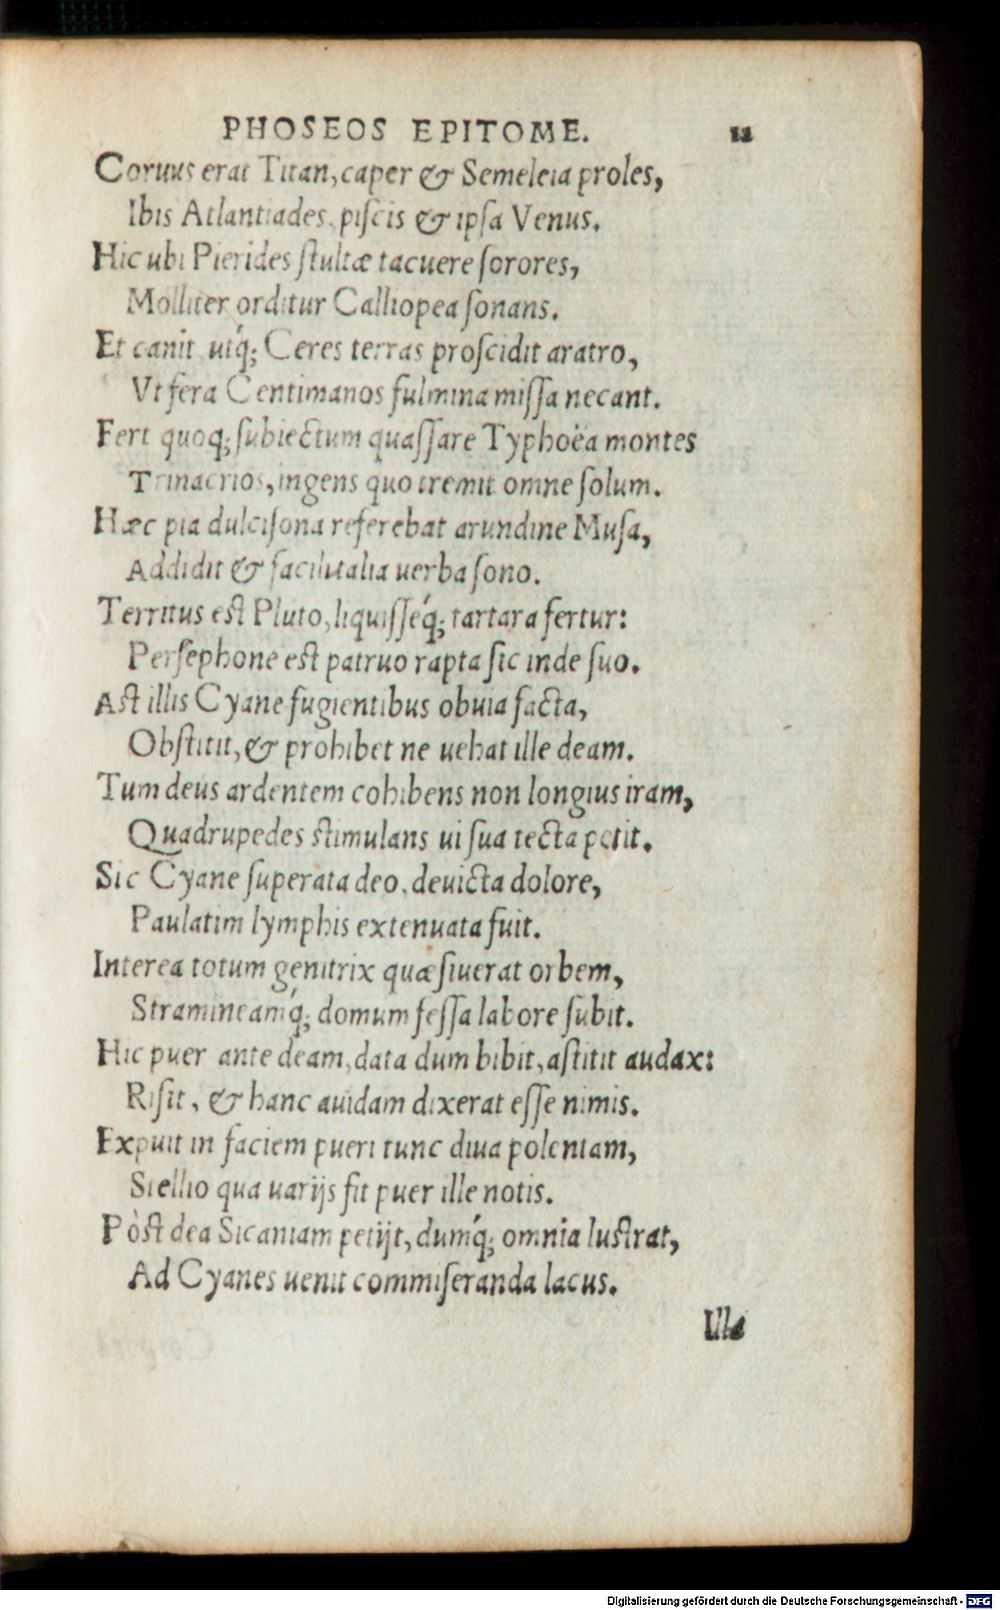 PHOSEOS EPITOME. 12
Coruus erat Titan, caper & Semeleia proles,
Ibis Atlantiades, piſcis & ipſa Venus.
Hic ubi Pierides ſtultæ tacuere ſorores,
Molliter orditur Calliopea ſonans.
Et canit utq́; Ceres terras proſcidit aratro,
Vt fera Centimanos fulmina miſſa necant.
Fert quoq; ſubiectum quaſſare Typhoëa montes
Trinacrios, ingens quo tremit omne ſolum.
Hæc pia dulciſona referebat arundine Muſa,
Addidit & facili talia uerba ſono.
Territus eſt Pluto, liquiſſeq́; tartara fertur:
Perſephone eſt patruo rapta ſic inde ſuo.
Aſt illis Cyane fugientibus obuia facta,
Obſtitit, & prohibet ne uehat ille deam.
Tum deus ardentem cohibens non longius iram,
Quadrupedes ſtimulans ui ſua tecta petit.
Sic Cyane ſuperata deo, deuicta dolore,
Paulatim lymphis extenuata fuit.
Interea totum genitrix quæſiuerat orbem,
Stramineamq́; domum feſſa labore ſubit.
Hic puer ante deam, data dum bibit, aſtitit audax:
Riſit, & hanc auidam dixerat eſſe nimis.
Expuit in faciem pueri tunc diua polentam,
Stellio qua uarijs fit puer ille notis.
Pòſt dea Sicaniam petijt, dumq́; omnia luſtrat,
Ad Cyanes uenit commiſeranda lacus.
Illa
Digitalisierung gefördert durch die Deutsche Forschungsgemeinschaft - DFG